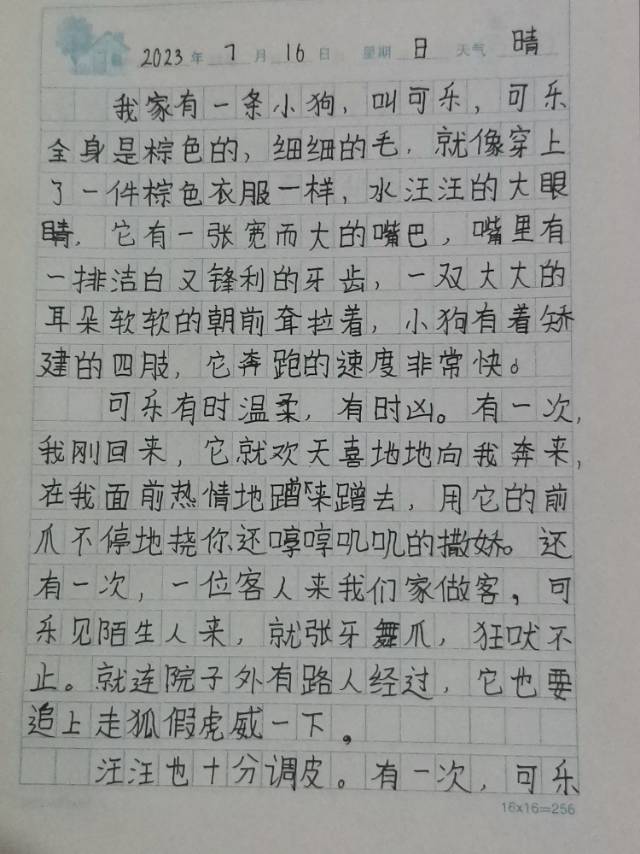 2023年 7月 16日 星期 日 天气 晴
我家有一条小狗，叫可乐，可乐
全身是棕色的，细细的毛，就像穿上
了一件棕色衣服一样，水汪汪的大眼
睛，它有一张宽而大的嘴巴，嘴里有
一排洁白又锋利的牙齿，一双大大的
耳朵软软的朝前耷拉着，小狗有着矫
建的四肢，它奔跑的速度非常快。
可乐有时温柔，有时凶。有一次，
我刚回来，它就欢天喜地地向我奔来，
在我面前热情地蹭来蹭去，用它的前
爪不停地挠你还哼哼叽叽的撒娇。还
有一次，一位客人来我们家做客，可
乐见陌生人来，就张牙舞爪，狂吠不
止。就连院子外有路人经过，它也要
追上走狐假虎威一下，
汪汪也十分调皮。有一次，可乐
16x16=256